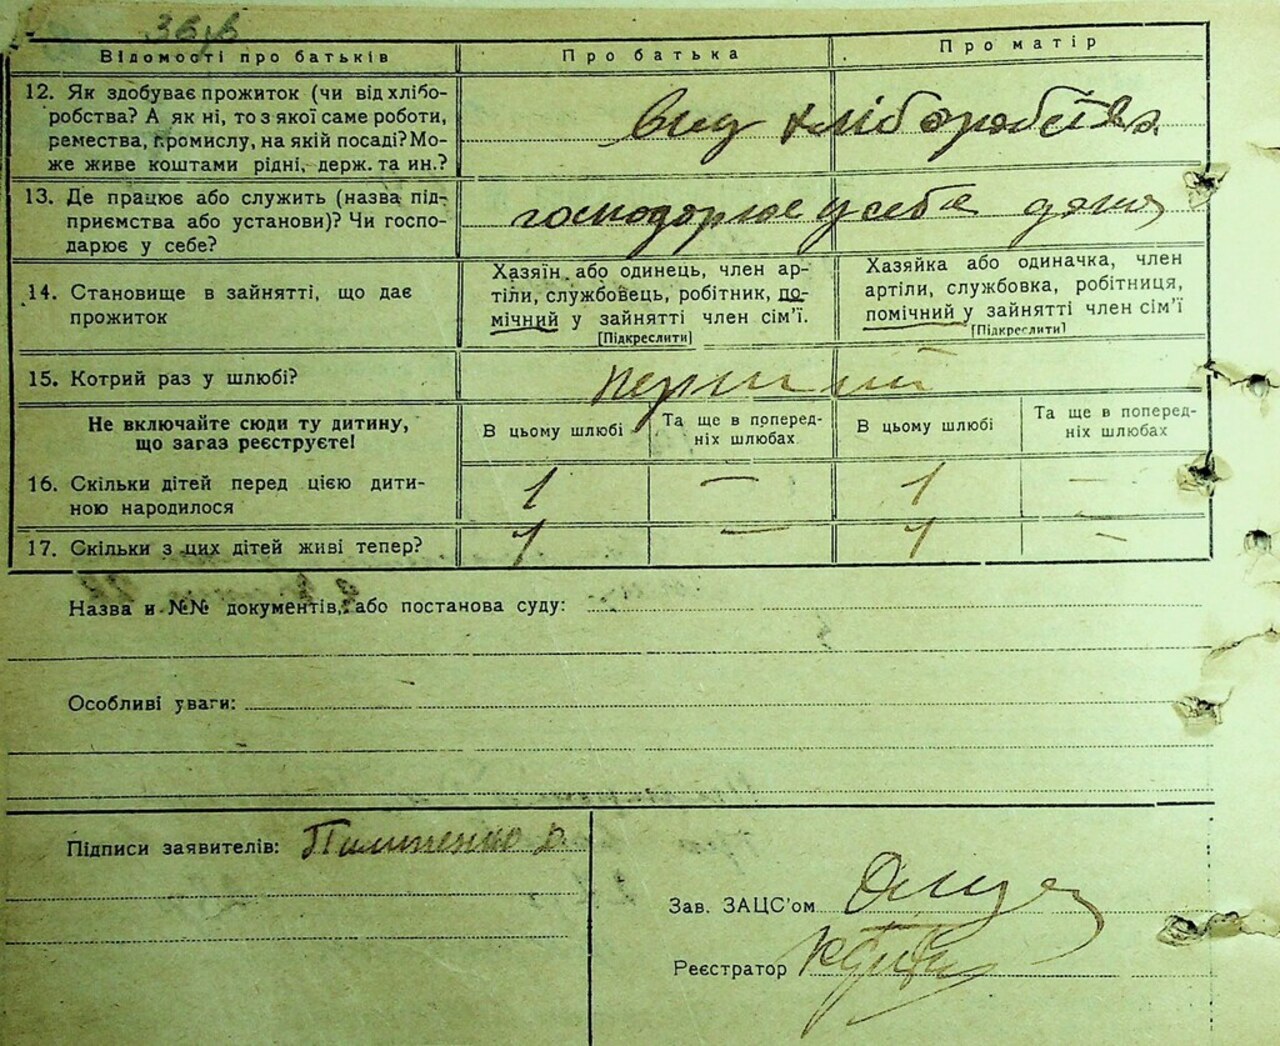 Відомості про батьків Про батька Про матір
12. Як здобуває прожиток (чи від хлібо-
робства? А як ні, то з якої саме роботи,
ремества, промислу, на якій посаді? Мо-
же живе коштами рідні, держ. та ин.?
вид хліборобства
13. Де працює або служить (назва під-
приємства або установи)? Чи госпо-
дарює у себе?
господорює у себе дома
14. Становище в зайнятті, що дає
прожиток
Хазяїн або одинець, член ар-
тіли, службовець, робітник, по-
мічний у зайнятті член сім'ї.
[Підкреслити]
Хазяйка або одиначка, член
артіли, службовка, робітниця,
помічний у зайнятті член сім'ї
[Підкреслити]
15. Котрий раз у шлюбі? перший
Не включайте сюди ту дитину,
що загаз реєструєте!
В цьому шлюбі
Та ще в поперед-
ніх шлюбах
В цьому шлюбі
Та ще в поперед-
ніх шлюбах
16. Скільки дітей перед цією дити-
ною народилося
1 — 1 —
17. Скільки з цих дітей живі тепер? 1 — 1 —
Назва и №№ документів, або постанова суду:
Особливі уваги:
Підписи заявителів:
Зав. ЗАЦС'ом
Реєстратор